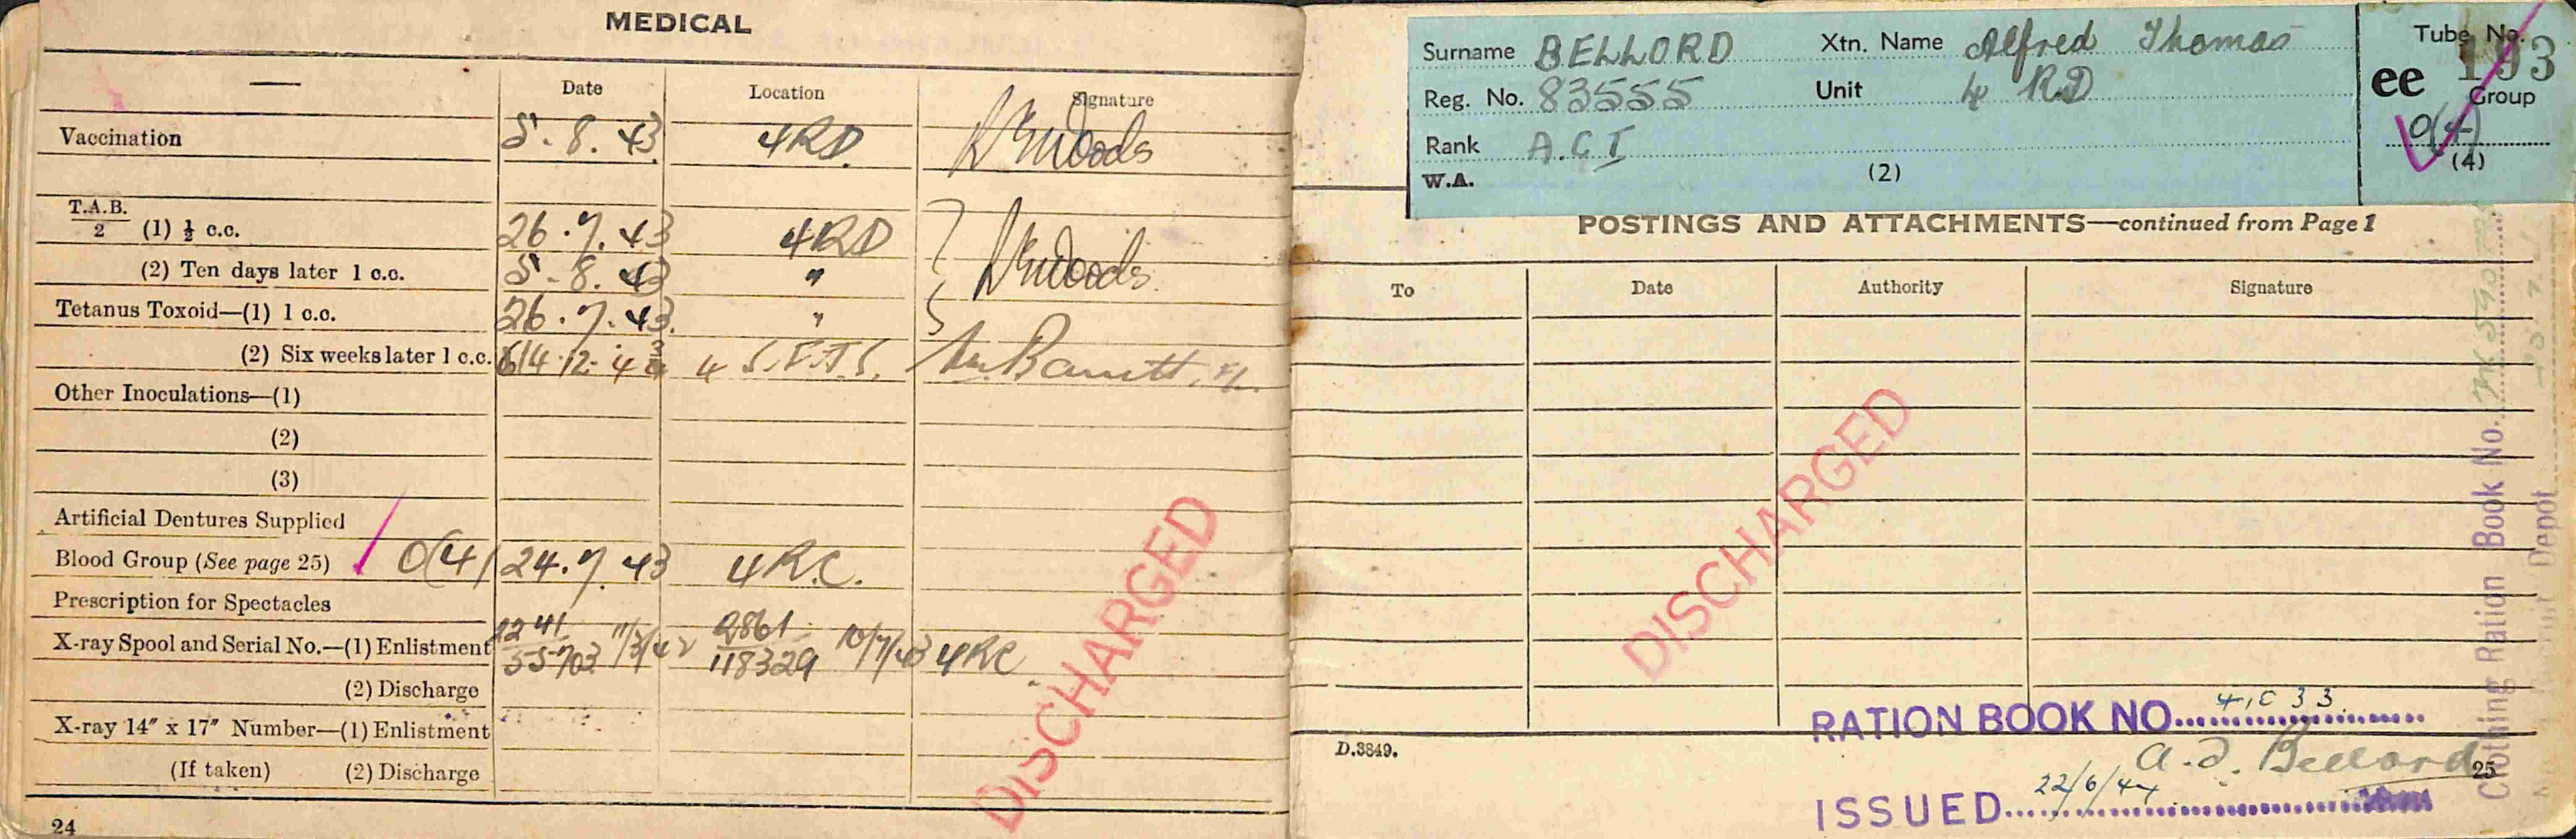 MEDICAL
Date Location Signature
Vaccination 5.8.43 4RD. Woods
T.A.B.
2 (1) ½ c.c. 26.7.43 4RD Woods
(2) Ten days later 1 c.c. 5-8.43 "
Tetanus Toxoid—(1) 1 c.c. 26.7.43. "
(2) Six weeks later 1 c.c. 4 S.F.T.S. Barrett
Other Inoculations—(1)
(2)
(3)
Artificial Dentures Supplied
Blood Group (See page 25) O(4) 24.7.43 4R.C.
Prescription for Spectacles
X-ray Spool and Serial No.—(1) Enlistment 1241 2861
55703 11/3/42 118329 10/7/43 4RC
(2) Discharge
X-ray 14" x 17" Number—(1) Enlistment
(If taken) (2) Discharge
DISCHARGED
24
Surname BELLORD Xtn. Name Alfred Thomas
Reg. No. 83555 Unit 4 RD
Rank A.C I
W.A. (2)
Tube No.
ee 193
Group
O(4)
(4)
POSTINGS AND ATTACHMENTS—continued from Page 1
To Date Authority Signature
DISCHARGED
RATION BOOK NO
D.3849.
A.T. Bellord
25
ISSUED 22/6/44
Clothing Ration Book No.
Depot